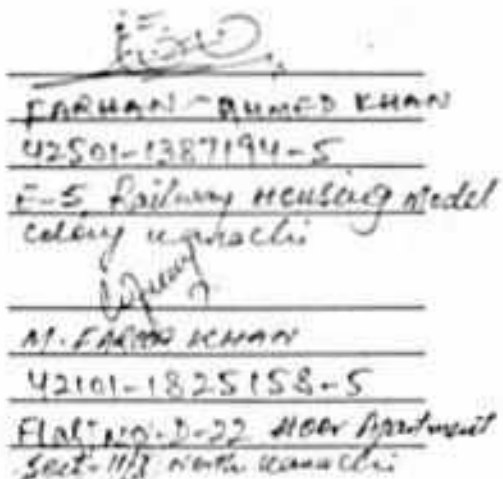 FARHAN AHMED KHAN
42501-1387194-5
E-5 Railway Housing Model
colony Karachi
M. FAROOQ KHAN
42101-1825158-5
Flat No. D-22 Noor Apartment
Sect-11/I North Karachi